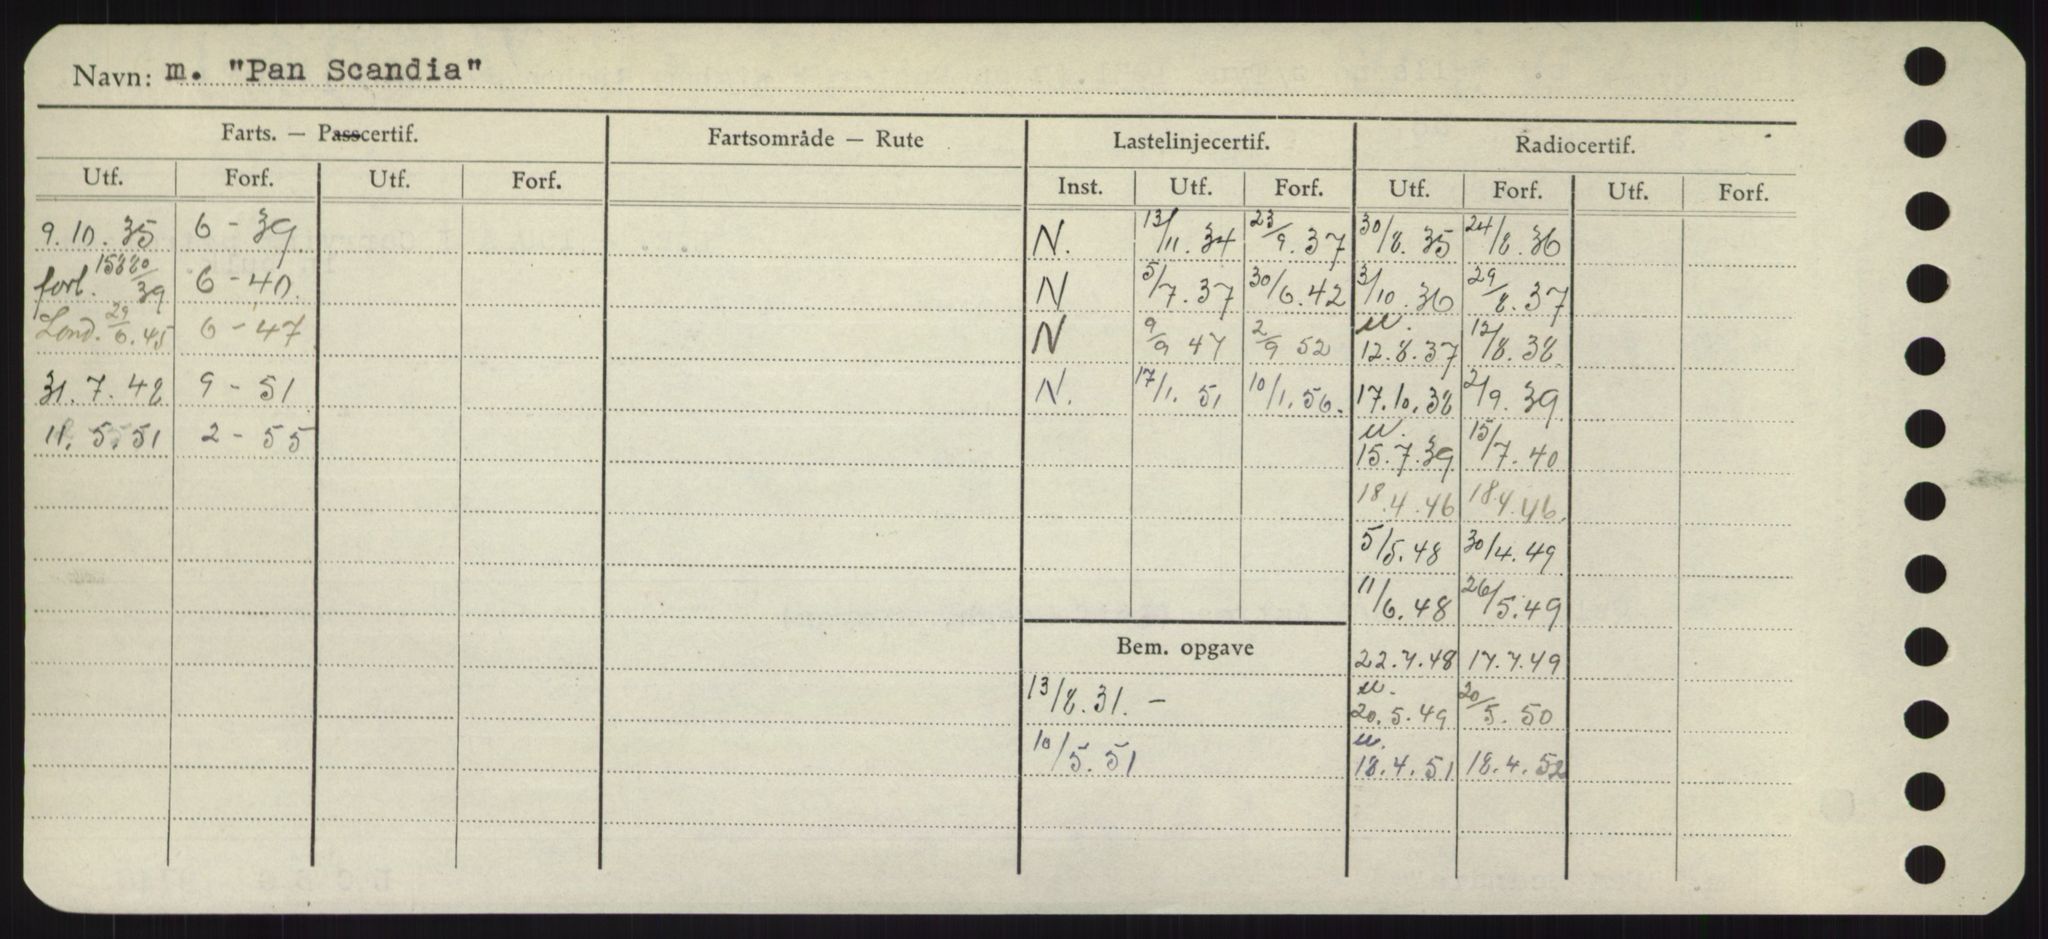 Navn: m. "Pan Scandia"
Farts. — Passcertif. Fartsområde — Rute Lastelinjecertif. Radiocertif.
Utf. Forf. Utf. Forf. Inst. Utf. Forf. Utf. Forf. Utf. Forf.
9.10.35 6 - 39 N. 13/11.34 23/9.37 30/8.35 24/8.36
forl. 39 6 - 40 N 5/7.37 30/6.42 3/10.36 29/8.37
Lond. 29/6.45 6 - 47 N 9/9 47 2/9 52 u. 12.8.37 12/8.38
31.7.48 9 - 51 N. 17/1.51 10/1.56. 17.10.38 2/9.39
11.5.51 2 - 55 u. 15.7.39 15/7.40
18.4.46 18.4.46.
5/5.48 30/4.49
11/6.48 26/5.49
Bem. opgave 22.7.48 17.7.49
13/8.31. — u. 20.5.49 20/5.50
10/5.51 u. 18.4.51 18.4.52